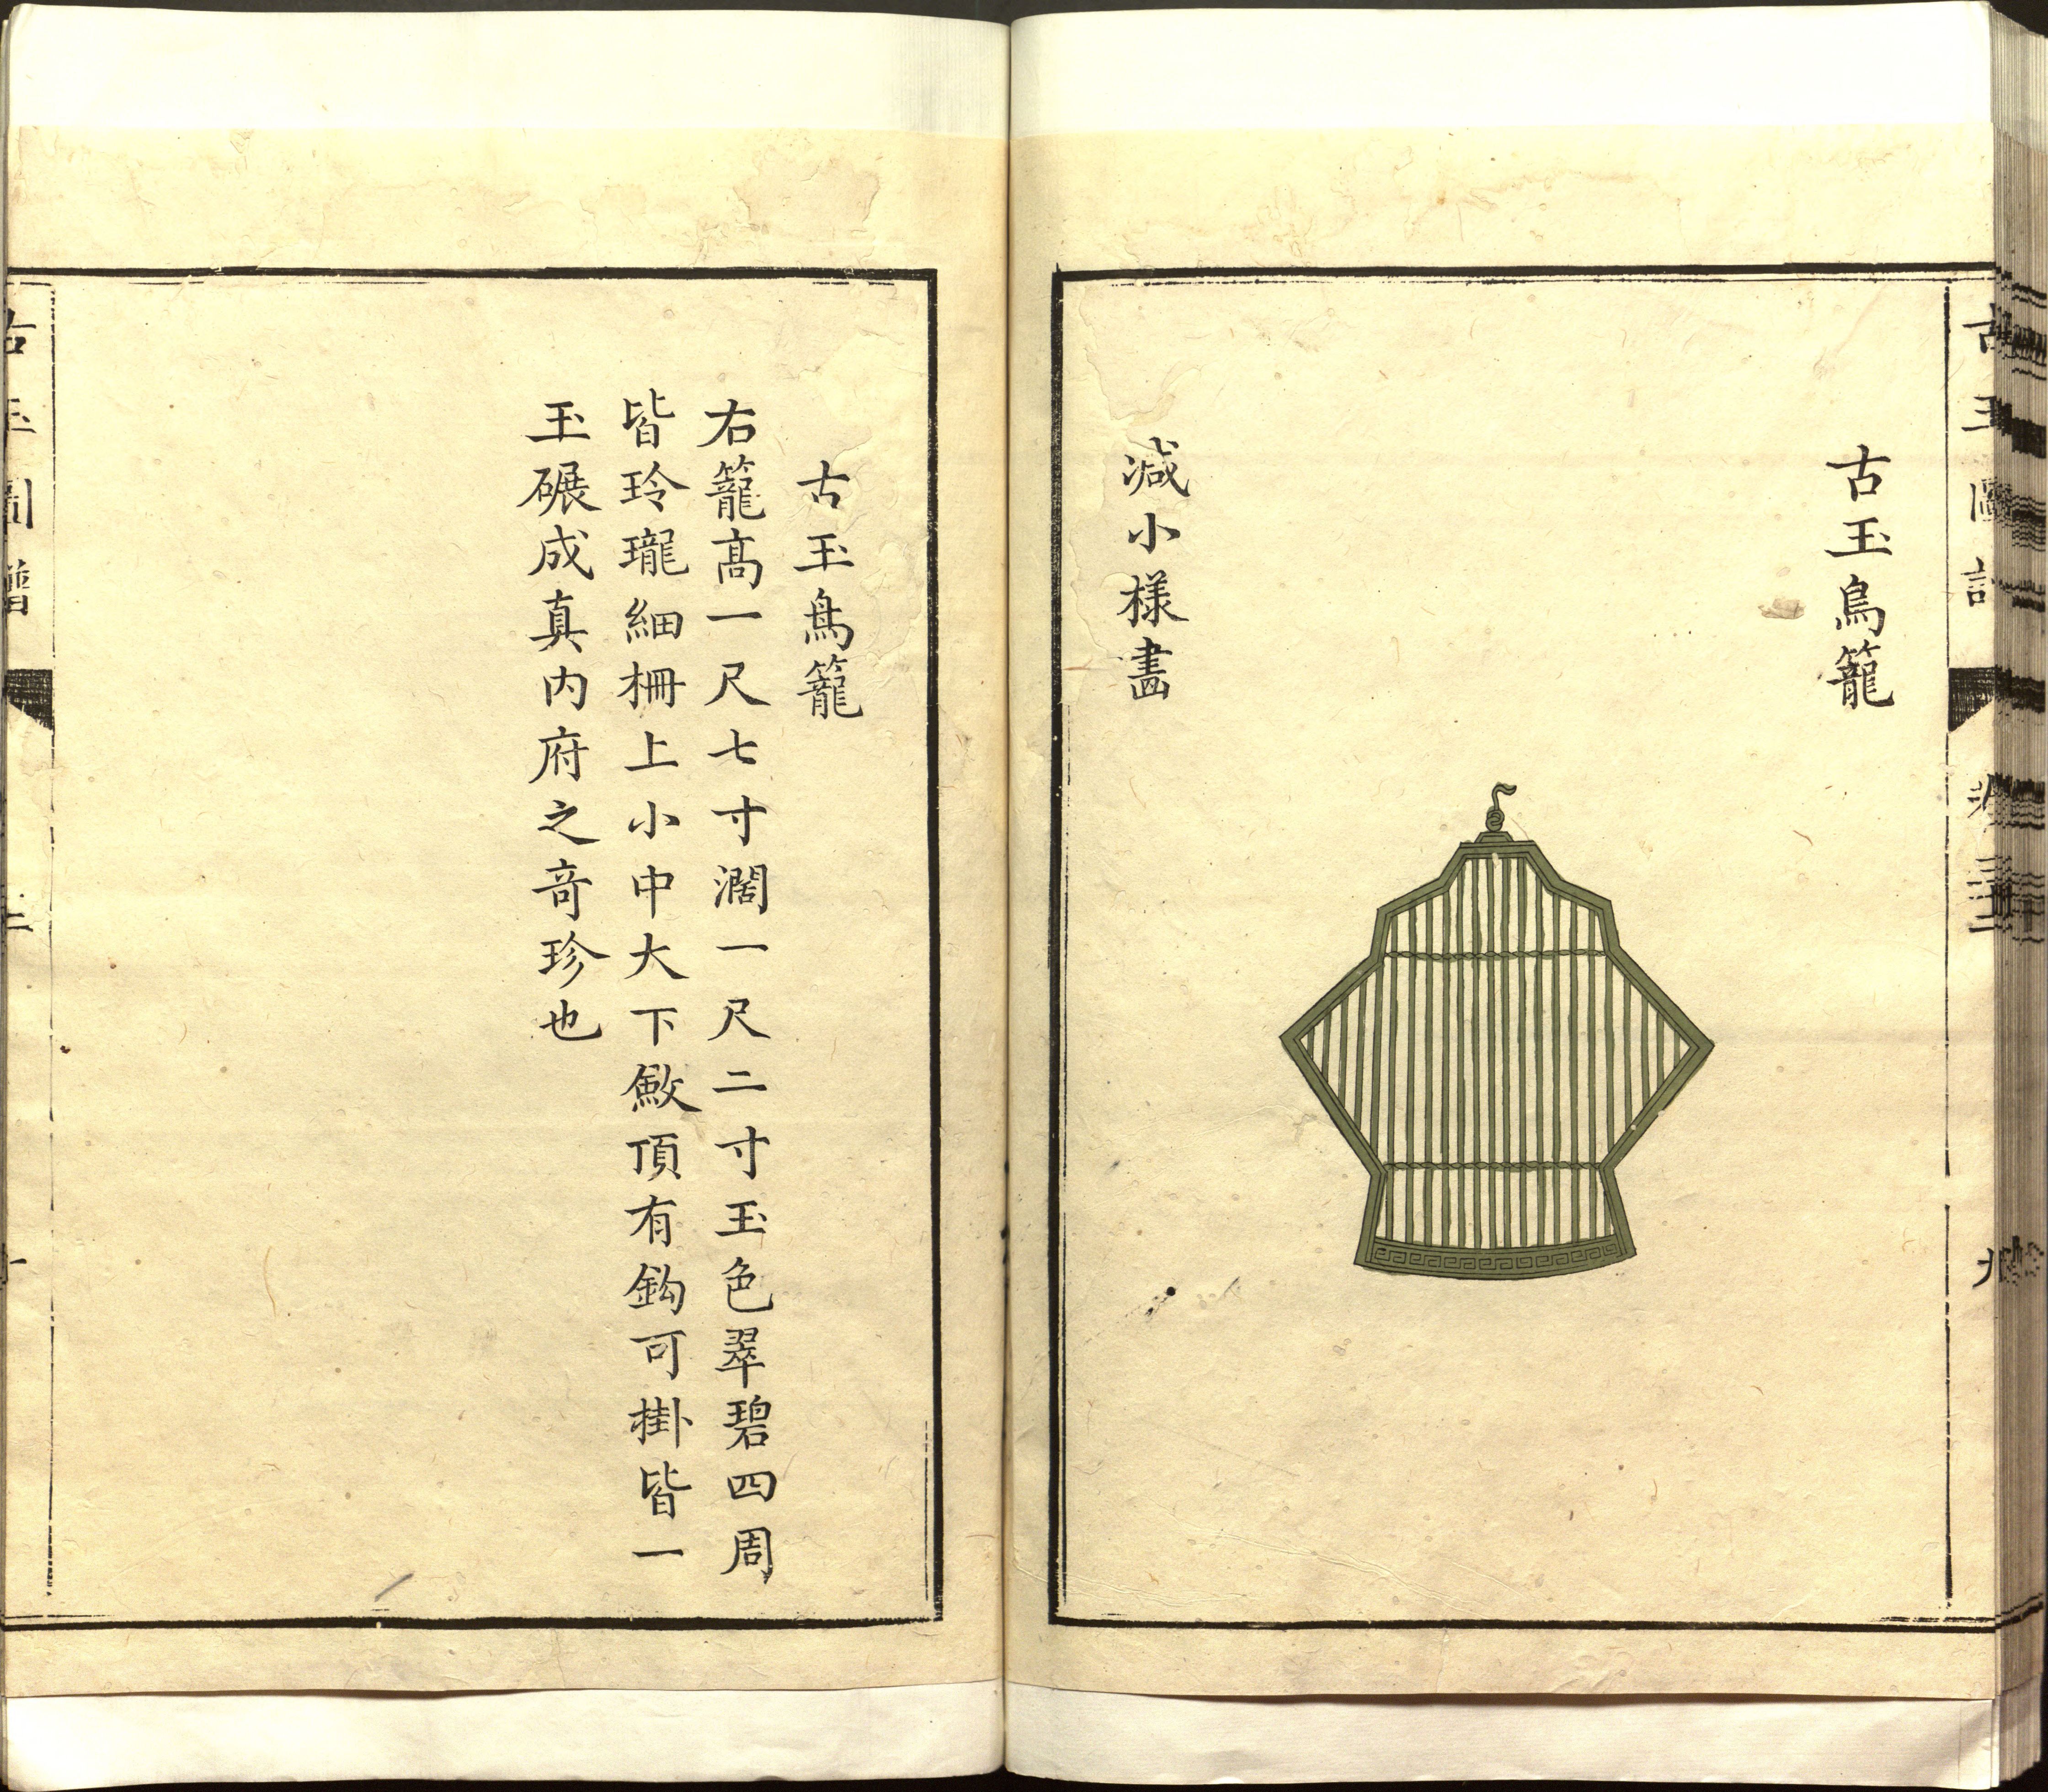 古玉鳥籠
減小樣畫
古玉鳥籠
右籠髙一尺七寸濶一尺二寸玉色翠碧四周
皆玲瓏細柵上小中大下斂頂有鈎可掛皆一
玉碾成真内府之竒珍也
古玉圖譜